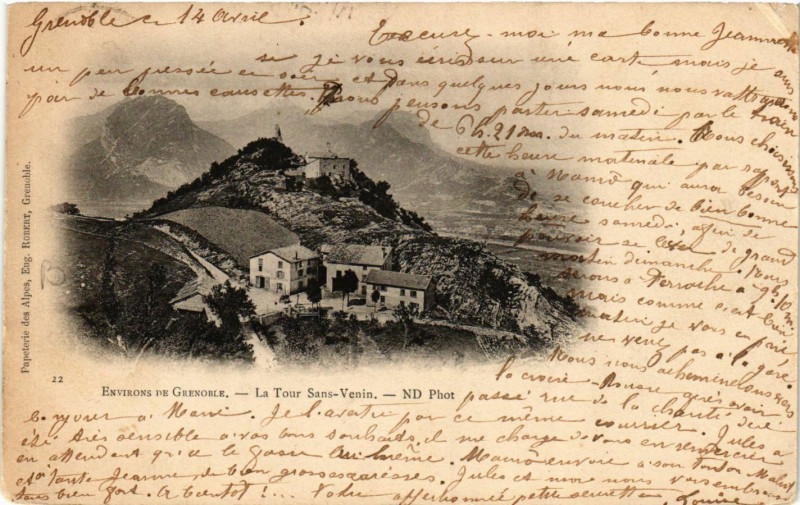 Grenoble ce 14 Avril.
Excusez-moi ma bonne Jeannette
si je vous écris sur une carte mais je suis
un peu pressée ce soir et dans quelques jours nous nous rattraperons
par de bonnes causettes. Nous pensons partir samedi par le train
de 6h.21m. du matin. Nous choisissons
cette heure matinale par rapport
à Mamé qui aura besoin
de se coucher de bien bonne
heure samedi, afin de
pouvoir se lever de grand
matin dimanche. Nous
serons à Perrache à 9h.
mais comme c'est bien
matin je vous en prie
ne venez pas à la gare.
Nous nous acheminerons vers
la croix-Rousse après avoir
passé rue de la charité dire
bonjour à Mami. Je l'avertis par ce même courrier. Jules a
été très sensible à vos bons souhaits, il me charge de vous en remercier
en attendant qu'il le fasse lui même. Mamé envoie à son tonton
et à tante Jeanne de bien grosses caresses. Jules et moi nous vous embrassons
tous bien fort. A bientôt !... Votre affectionnée petite
Louise
Papeterie des Alpes, Eug. ROBERT, Grenoble.
22
ENVIRONS DE GRENOBLE. — La Tour Sans-Venin. — ND Phot